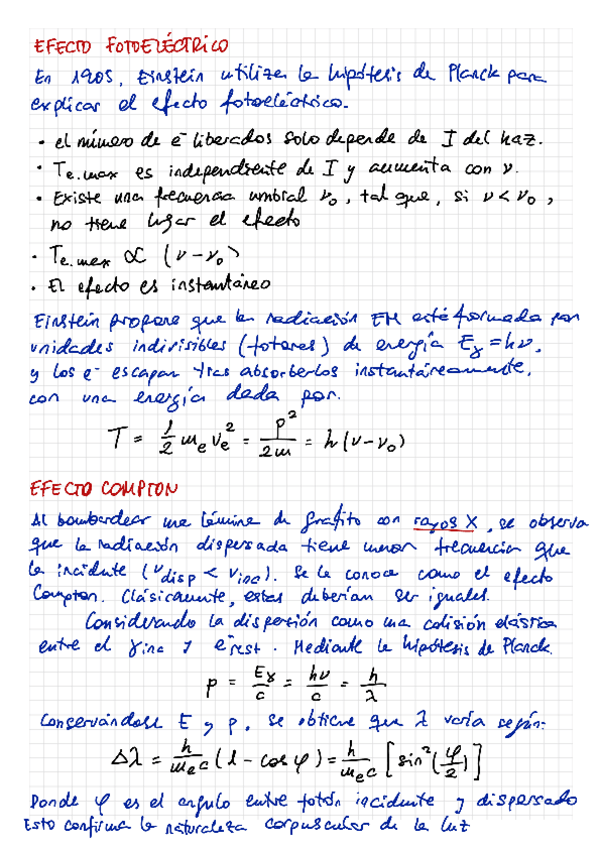 EFECTO FOTOELÉCTRICO
En 1905, Einstein utiliza la hipótesis de Planck para
explicar el efecto fotoeléctrico.
• el número de e⁻ liberados solo depende de I del haz.
• Te.max es independiente de I y aumenta con ν.
• Existe una frecuencia umbral ν₀, tal que, si ν < ν₀,
no tiene lugar el efecto
• Te.max ∝ (ν-ν₀)
• El efecto es instantáneo
Einstein propone que la radiación EM está formada por
unidades indivisibles (fotones) de energía Eγ = hν,
y los e⁻ escapan tras absorberlos instantáneamente,
con una energía dada por.
T = 1/2 mₑ vₑ² = p²/2m = h(ν-ν₀)
EFECTO COMPTON
Al bombardear una lámina de grafito con rayos X, se observa
que la radiación dispersada tiene menor frecuencia que
la incidente (νdisp < νinc). Se le conoce como el efecto
Compton. Clásicamente, estas deberían ser iguales.
Considerando la dispersión como una colisión elástica
entre el γinc y e⁻rest. Mediante la hipótesis de Planck.
p = Eγ/c = hν/c = h/λ
Conservándose E y p, se obtiene que λ varía según:
Δλ = h/mₑc (1 - cos φ) = h/mₑc [sin²(φ/2)]
Donde φ es el angulo entre fotón incidente y dispersado
Esto confirma la naturaleza corpuscular de la luz